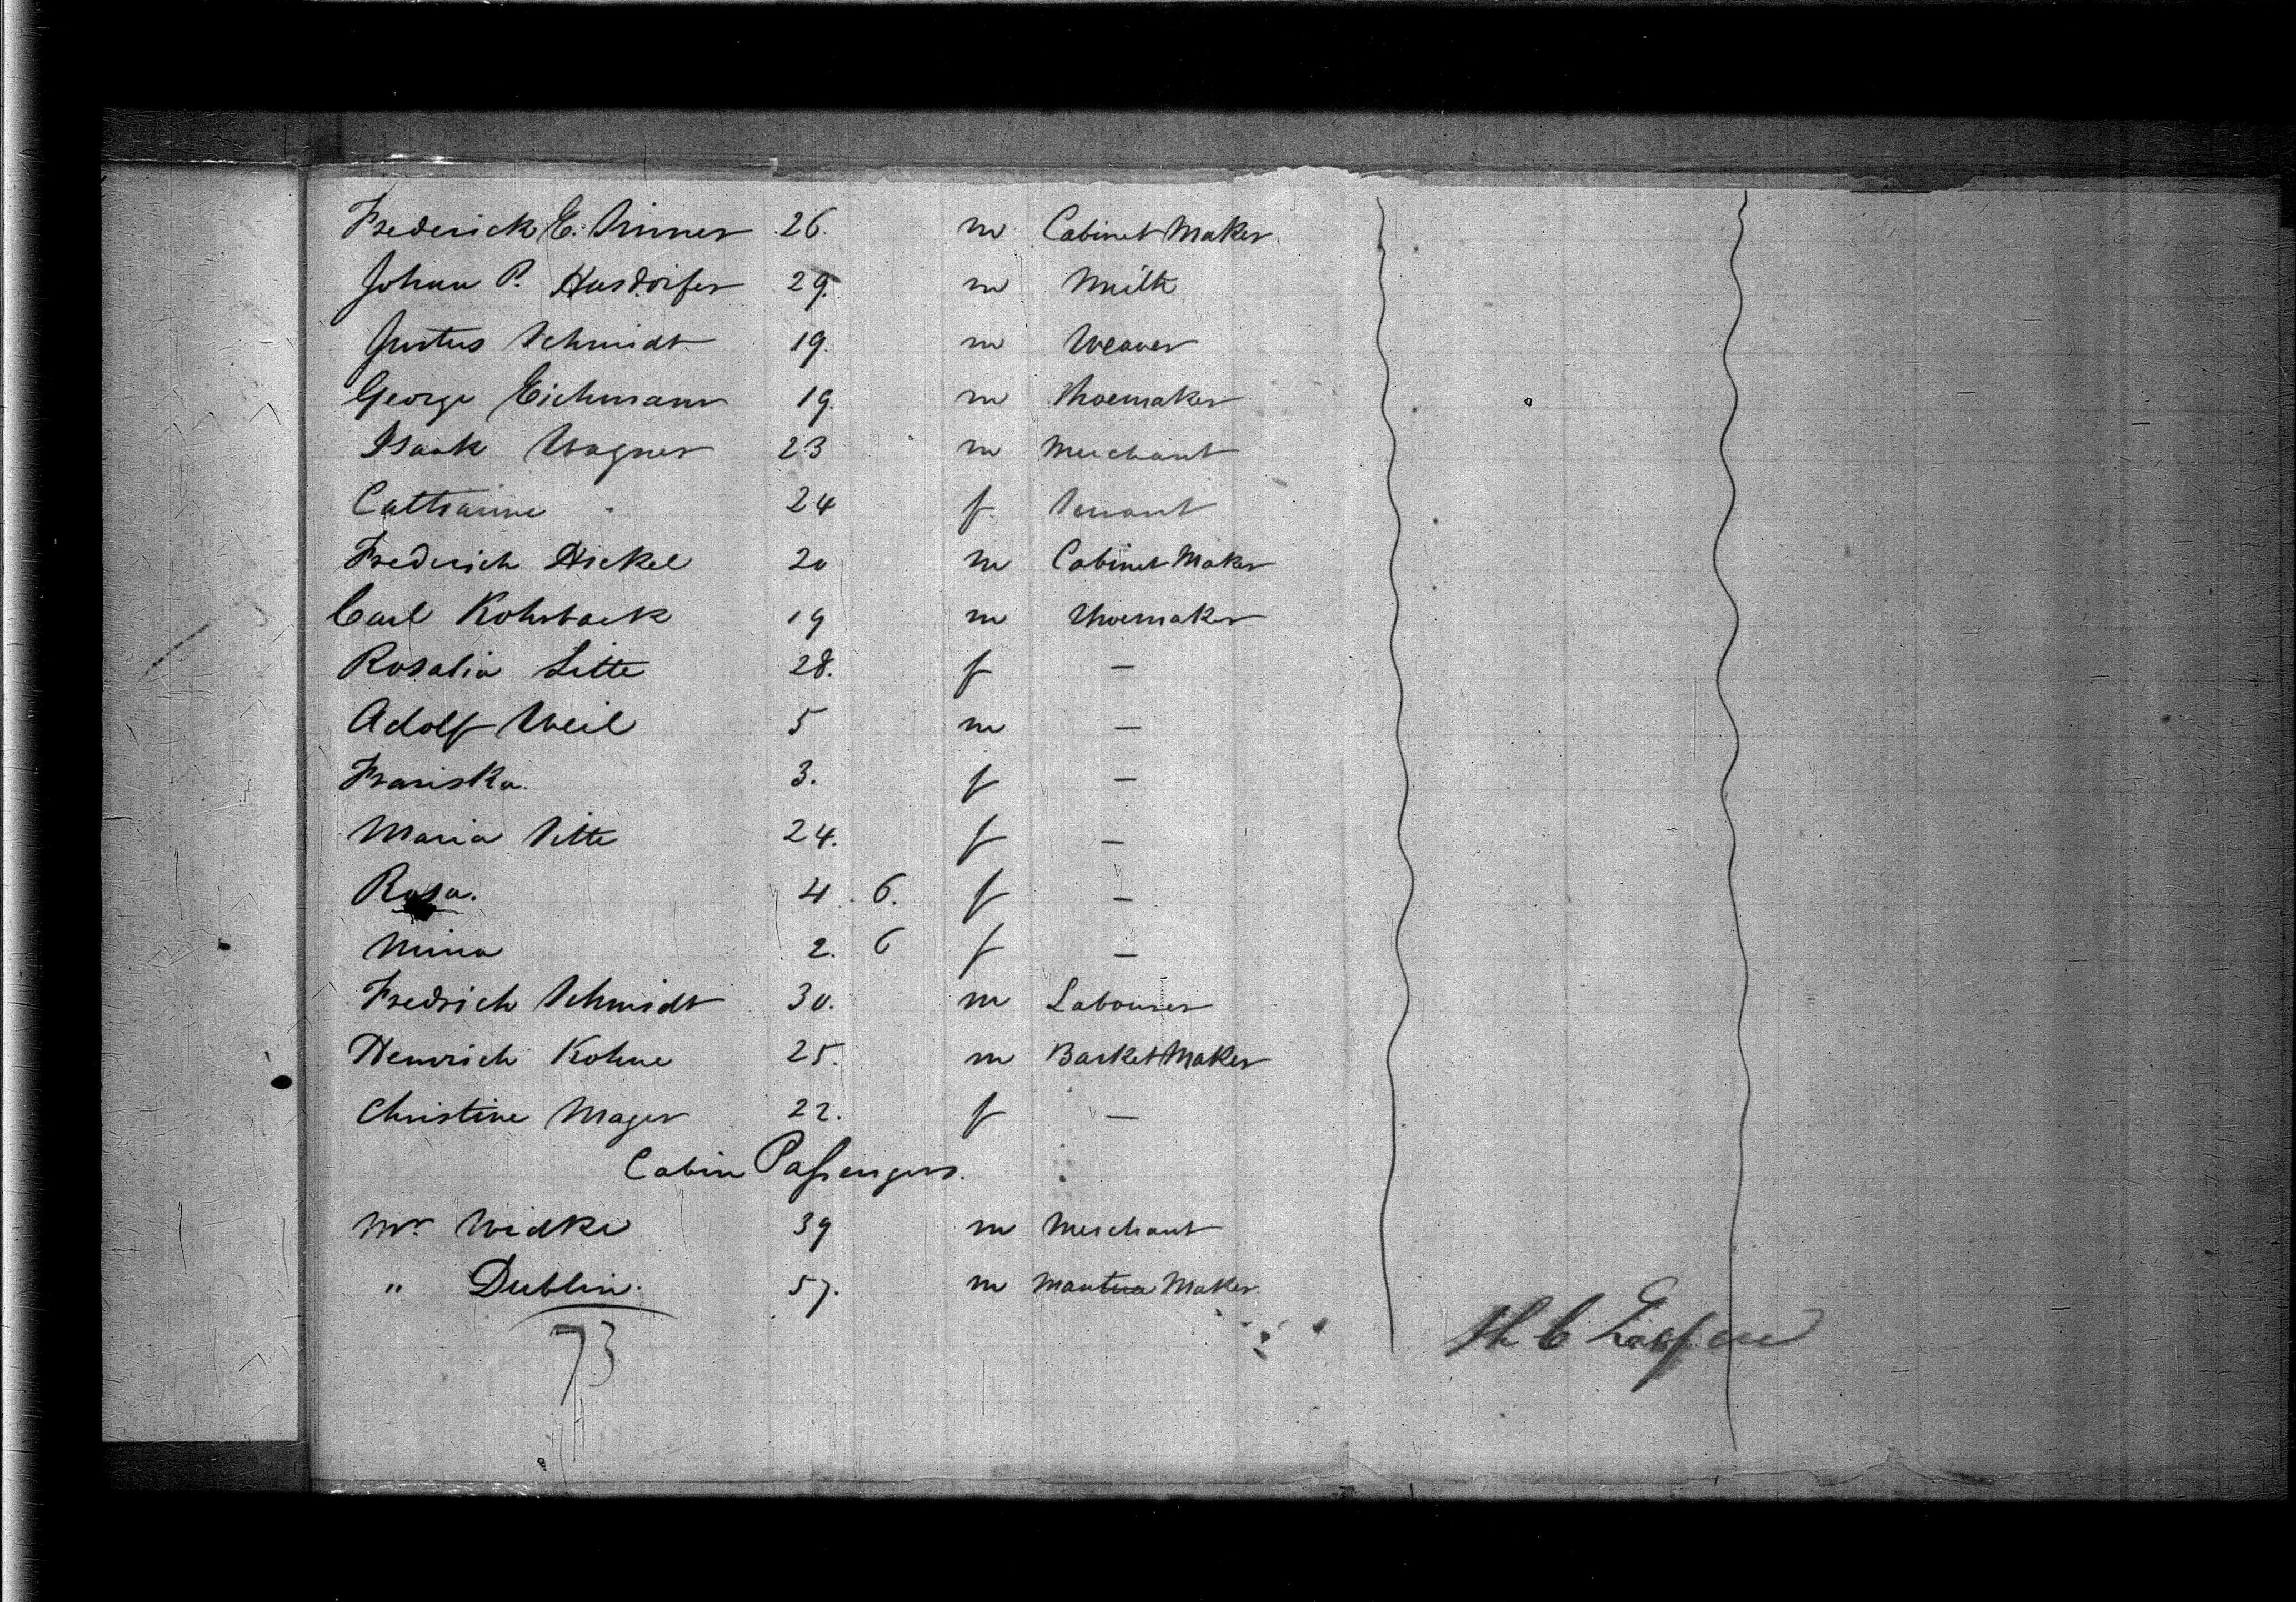 Frederick E. Sinner 26. m Cabinet Maker.
Johann P. Hasdörfer 29. m Smith
Justus Schmidt 19. m Weaver
George Eichmann 19. m Shoemaker
Isaak Wagner 23 m Merchant
Catharine " 24 f. Servant
Frederich Hickel 20 m Cabinet Maker
Carl Kohrback 19 m Shoemaker
Rosalia Sitte 28. f —
Adolf Weil 5 m —
Franiska. 3. f —
Maria Sitte 24. f —
Rosa. 4. 6. f —
Mina 2. 6 f —
Fredrich Schmidt 30. m Labourer
Heinrich Kohne 25. m Basket Maker
Christine Mager 22. f —
Cabin Passengers.
Mr. Widke 39 m Merchant
" Dublin. 57. m Mantua Maker.
73